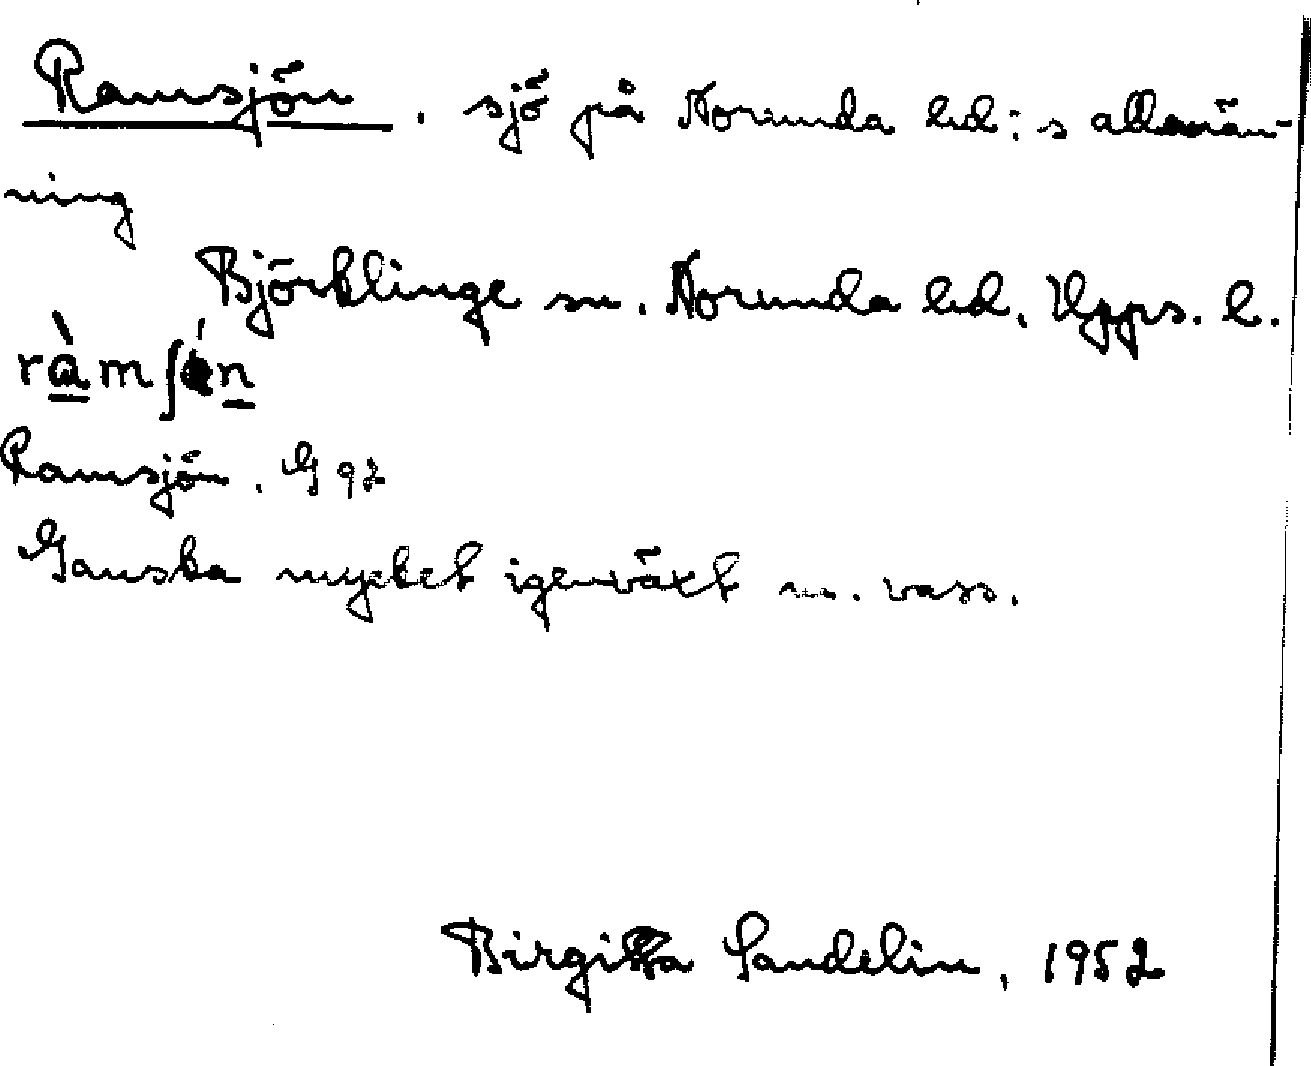 Ramsjön, sjö på Norunda hd:s allmän-
ning
Björklinge sn. Norunda hd. Upps. l.
Ramsjön. G 92
Ganska mycket igenväxt m. vass.
Birgitta Sandelin, 1952